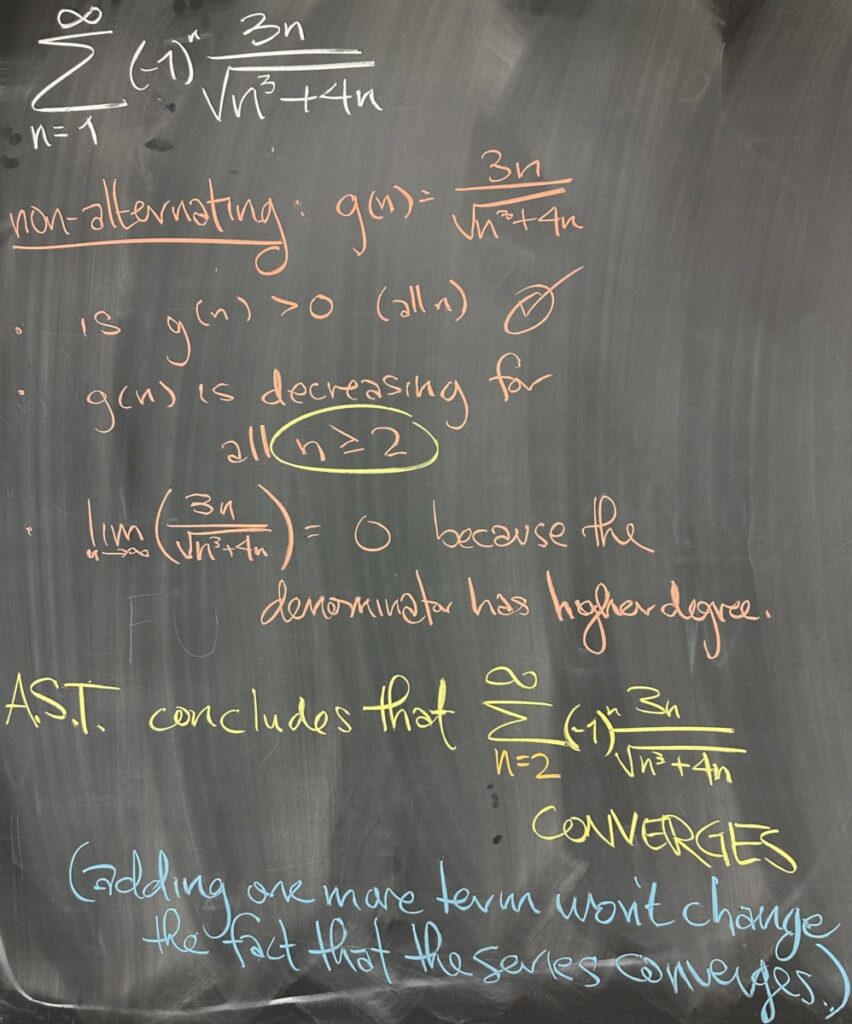 ∞
∑ (-1)ⁿ 3n / √(n³+4n)
n=1
non-alternating: g(n) = 3n / √(n³+4n)
· is g(n) > 0 (all n) ✓
· g(n) is decreasing for
all n ≥ 2
· lim n→∞ (3n / √(n³+4n)) = 0 because the
denominator has higher degree.
FU
A.S.T. concludes that ∞ ∑ n=2 (-1)ⁿ 3n / √(n³+4n)
CONVERGES
(adding one more term won't change
the fact that the series converges.)